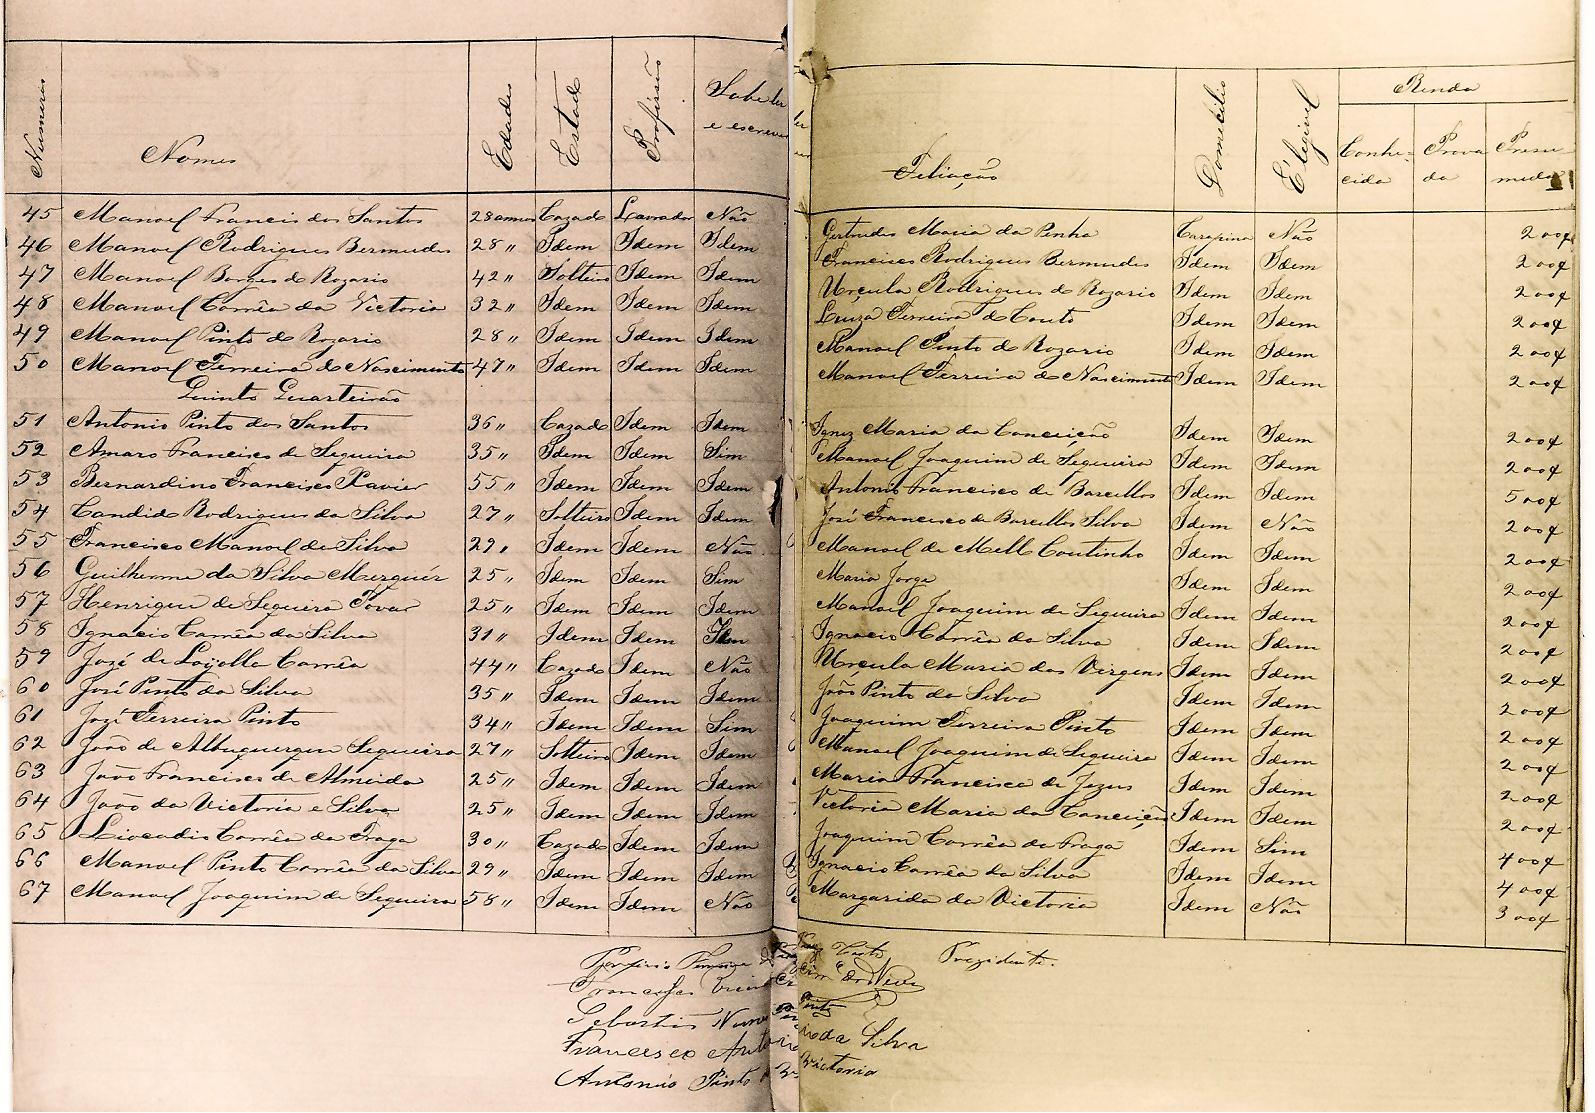 Numeros Nomes Edades Estado Profissão Sabe ler e escrever Filiação Domicilio Elegivel Renda
Conhe- Prova Presu-
cida da mida
45 Manoel Francis dos Santos 28 annos Cazado Lavrador Não Gertrudes Maria da Penha Carapina Não 200$
46 Manoel Rodrigues Bermudes 28 " Idem Idem Idem Francisco Rodrigues Bermudes Idem Idem 200$
47 Manoel Borges do Rozario 42 " Solteiro Idem Idem Urçula Rodrigues do Rozario Idem Idem 200$
48 Manoel Corrêa da Victoria 32 " Idem Idem Idem Luuza Ferreira do Couto Idem Idem 200$
49 Manoel Pinto do Rozario 28 " Idem Idem Idem Manoel Pinto do Rozario Idem Idem 200$
50 Manoel Ferreira do Nascimento 47 " Idem Idem Idem Manoel Ferreira do Nascimento Idem Idem 200$
Quinto Quarteirão
51 Antonio Pinto dos Santos 36 " Cazado Idem Idem Ignez Maria da Conceição Idem Idem 200$
52 Amaro Francisco de Sequeira 35 " Idem Idem Sim Manoel Joaquim de Sequeira Idem Idem 200$
53 Bernardino Francisco Xavier 55 " Idem Idem Idem Antonio Francisco de Barcellos Idem Idem 500$
54 Candido Rodrigues da Silva 27 " Solteiro Idem Idem José Francisco de Barcellos Silva Idem Não 200$
55 Francisco Manoel da Silva 29 " Idem Idem Não Manoel de Mello Coutinho Idem Idem 200$
56 Guilherme da Silva 25 " Idem Idem Sim Maria Jorge Idem Idem 200$
57 Henrique de Sequeira Tovar 25 " Idem Idem Idem Manoel Joaquim de Sequeira Idem Idem 200$
58 Ignacio Corrêa da Silva 31 " Idem Idem Idem Ignacio Corrêa da Silva Idem Idem 200$
59 Jozé de Loyolla Corrêa 44 " Cazado Idem Não Urçula Maria das Virgens Idem Idem 200$
60 José Pinto da Silva 35 " Idem Idem Idem João Pinto da Silva Idem Idem 200$
61 Jozé Ferreira Pinto 34 " Idem Idem Sim Joaquim Ferreira Pinto Idem Idem 200$
62 João de Albuquerque Sequeira 27 " Solteiro Idem Idem Manoel Joaquim de Sequeira Idem Idem 200$
63 João Francisco de Almeida 25 " Idem Idem Idem Maria Francisca de Jezus Idem Idem 200$
64 João da Victoria e Silva 25 " Idem Idem Idem Victoria Maria da Conceição Idem Idem 200$
65 Liocadio Corrêa da Fraga 30 " Cazado Idem Idem Joaquim Corrêa da Fraga Idem Sim 400$
66 Manoel Pinto Corrêa da Silva 29 " Idem Idem Idem Ignacio Corrêa da Silva Idem Idem 400$
67 Manoel Joaquim de Sequeira 58 " Idem Idem Não Margarida da Victoria Idem Não 300$
Porfirio Prezidente.
Francisco
Sebastião Nunes
Francisco Anto da Silva
Antonio Pinto Victoria